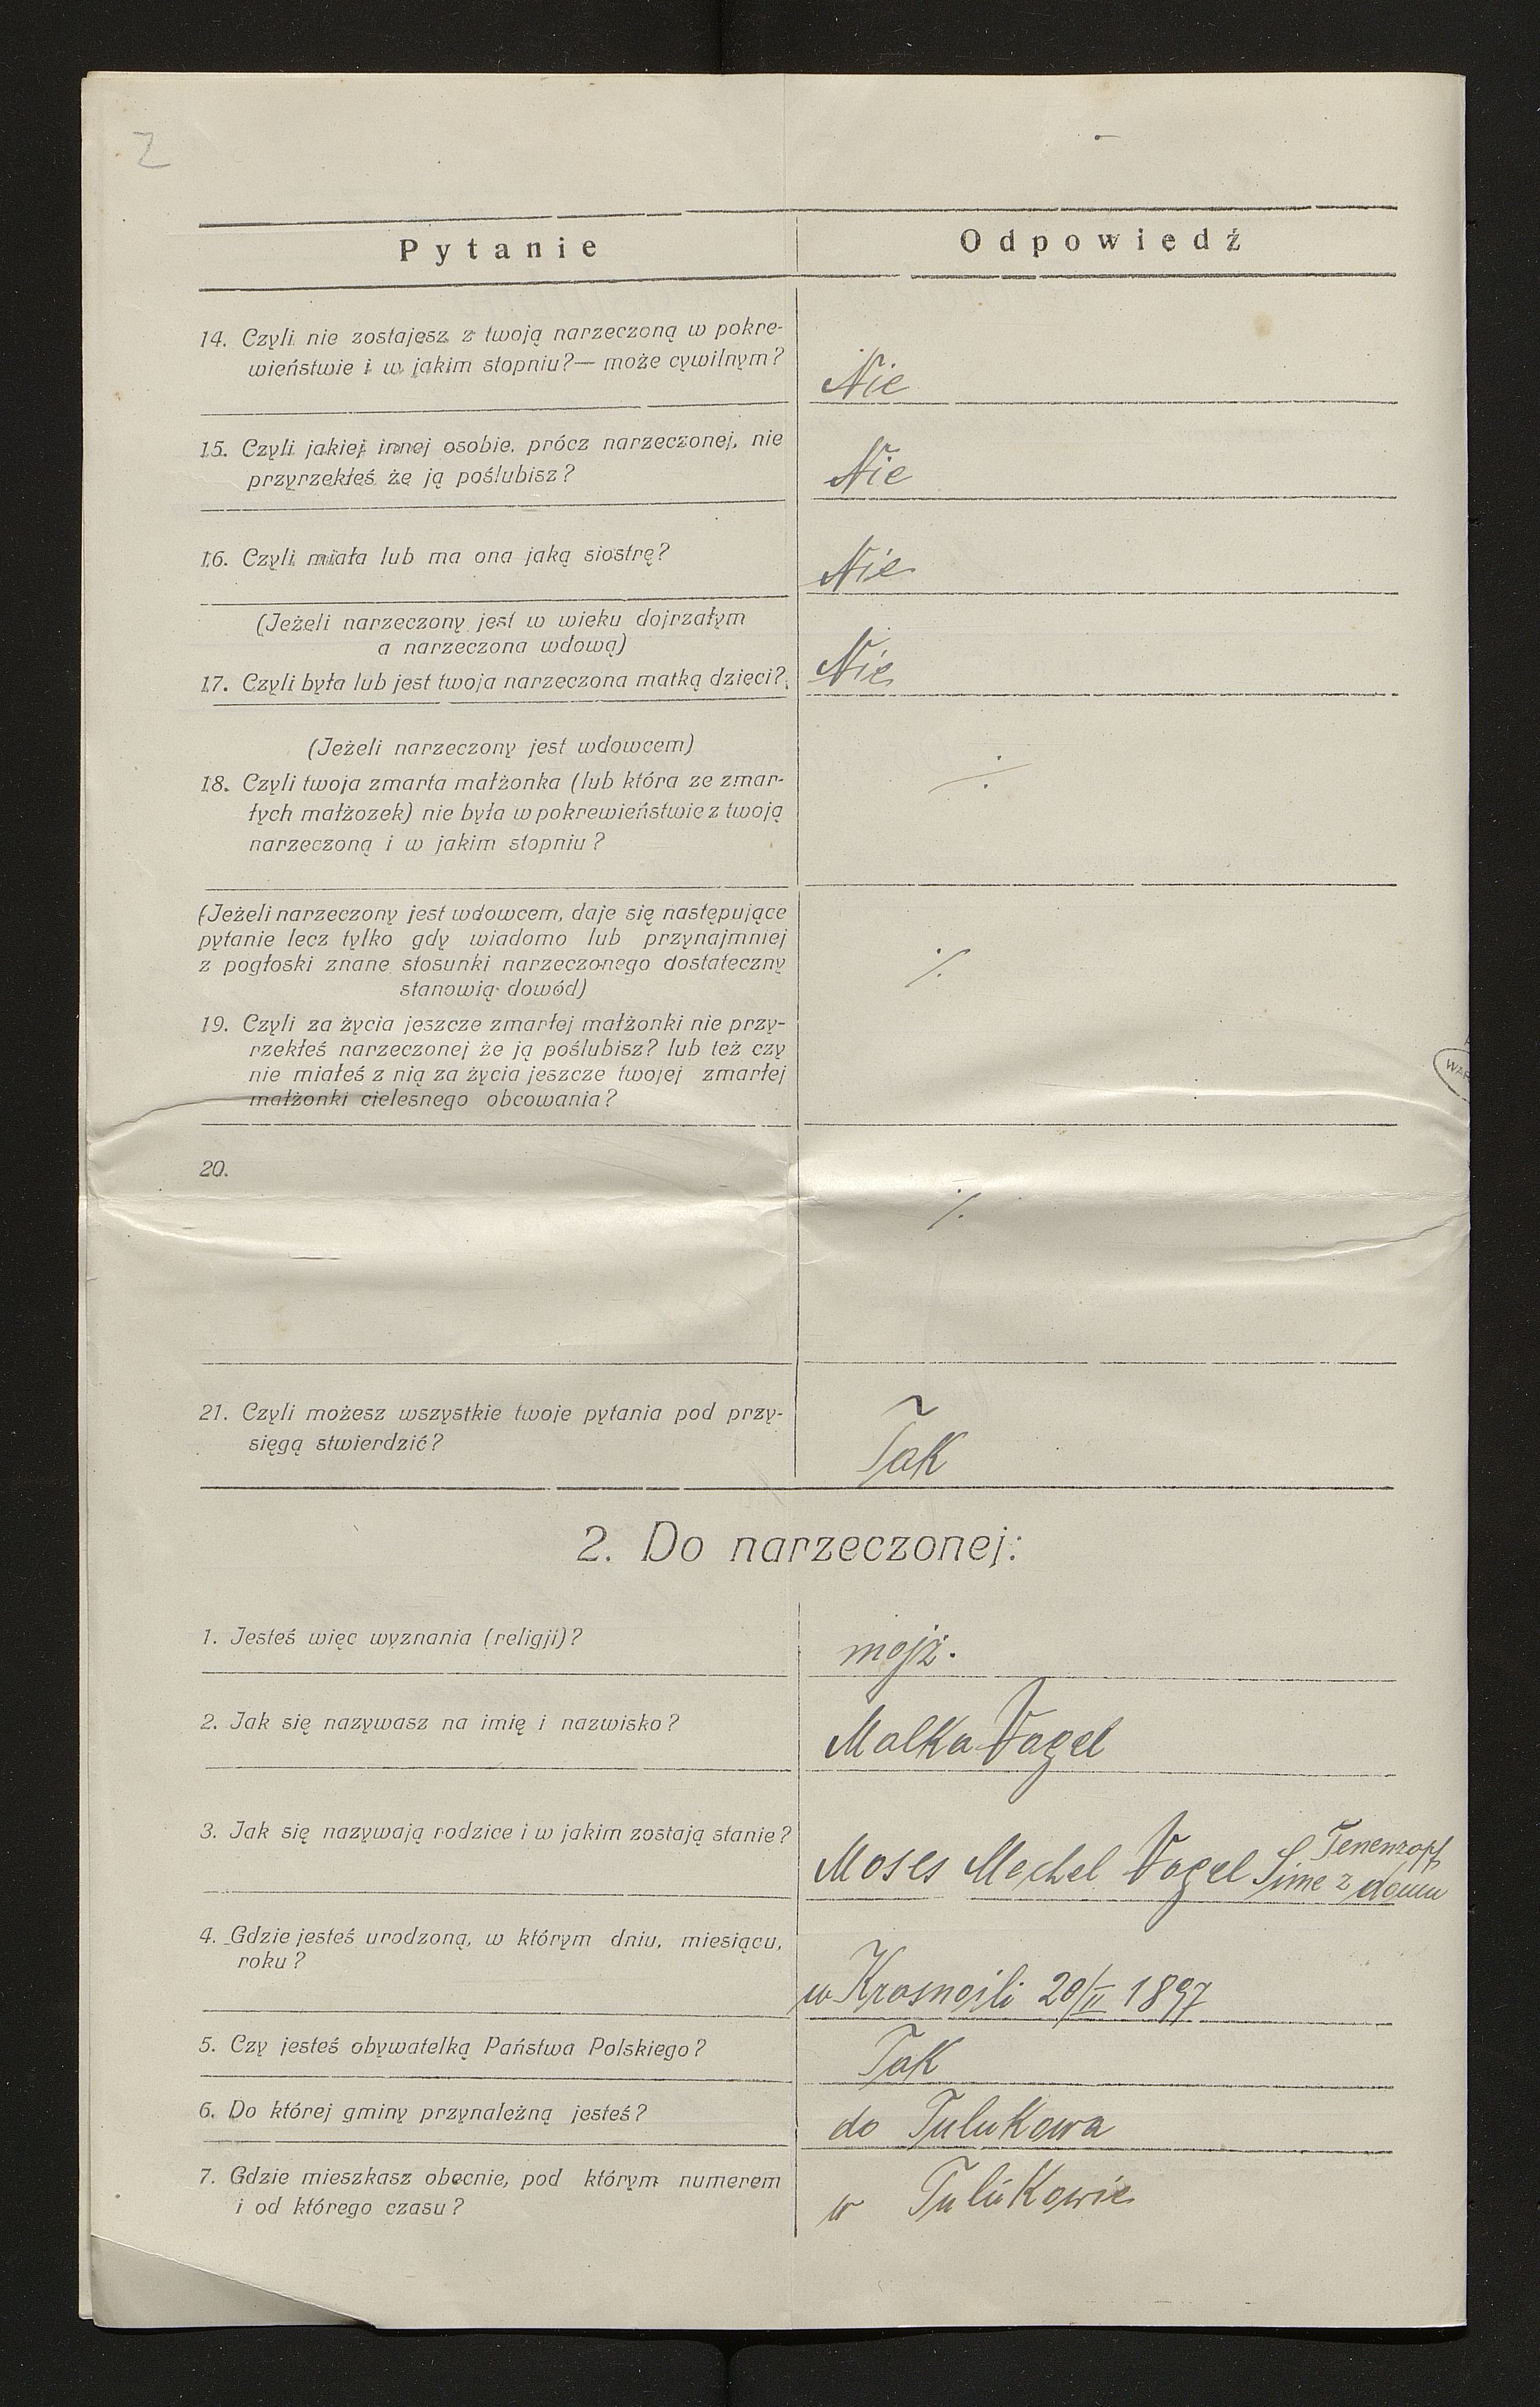 2
Pytanie
Odpowiedź
14. Czyli nie zostajesz z twoją narzeczoną w pokre-
wieństwie i w jakim stopniu?— może cywilnym?
Nie
15. Czyli jakiej innej osobie, prócz narzeczonej, nie
przyrzekłeś że ją poślubisz?
Nie
16. Czyli miała lub ma ona jaką siostrę?
Nie
(Jeżeli narzeczony jest w wieku dojrzałym
a narzeczona wdową)
17. Czyli była lub jest twoja narzeczona matką dzieci?
Nie
(Jeżeli narzeczony jest wdowcem)
18. Czyli twoja zmarta małżonka (lub która ze zmar-
łych małżozek) nie była w pokrewieństwie z twoją
narzeczoną i w jakim stopniu?
(Jeżeli narzeczony jest wdowcem, daje się następujące
pytanie lecz tylko gdy wiadomo lub przynajmniej
z pogłoski znane stosunki narzeczonego dostateczny
stanowią dowód)
19. Czyli za życia jeszcze zmarłej małżonki nie przy-
rzekłeś narzeczonej że ją poślubisz? lub też czy
nie miałeś z nią za życia jeszcze twojej zmarłej
małżonki cielesnego obcowania?
20.
21. Czyli możesz wszystkie twoje pytania pod przy-
sięgą stwierdzić?
Tak
2. Do narzeczonej:
1. Jesteś więc wyznania (religji)?
mojż.
2. Jak się nazywasz na imię i nazwisko?
Malka Vogel
3. Jak się nazywają rodzice i w jakim zostają stanie?
Moses Mechel Vogel Sime z domu
Tenenzopf
4. Gdzie jesteś urodzoną, w którym dniu, miesiącu,
roku?
w Krasnojli 20/II 1897
5. Czy jesteś obywatelką Państwa Polskiego?
Tak
6. Do której gminy przynależną jesteś?
do Tulukowa
7. Gdzie mieszkasz obecnie, pod którym numerem
i od którego czasu?
w Tulukowie